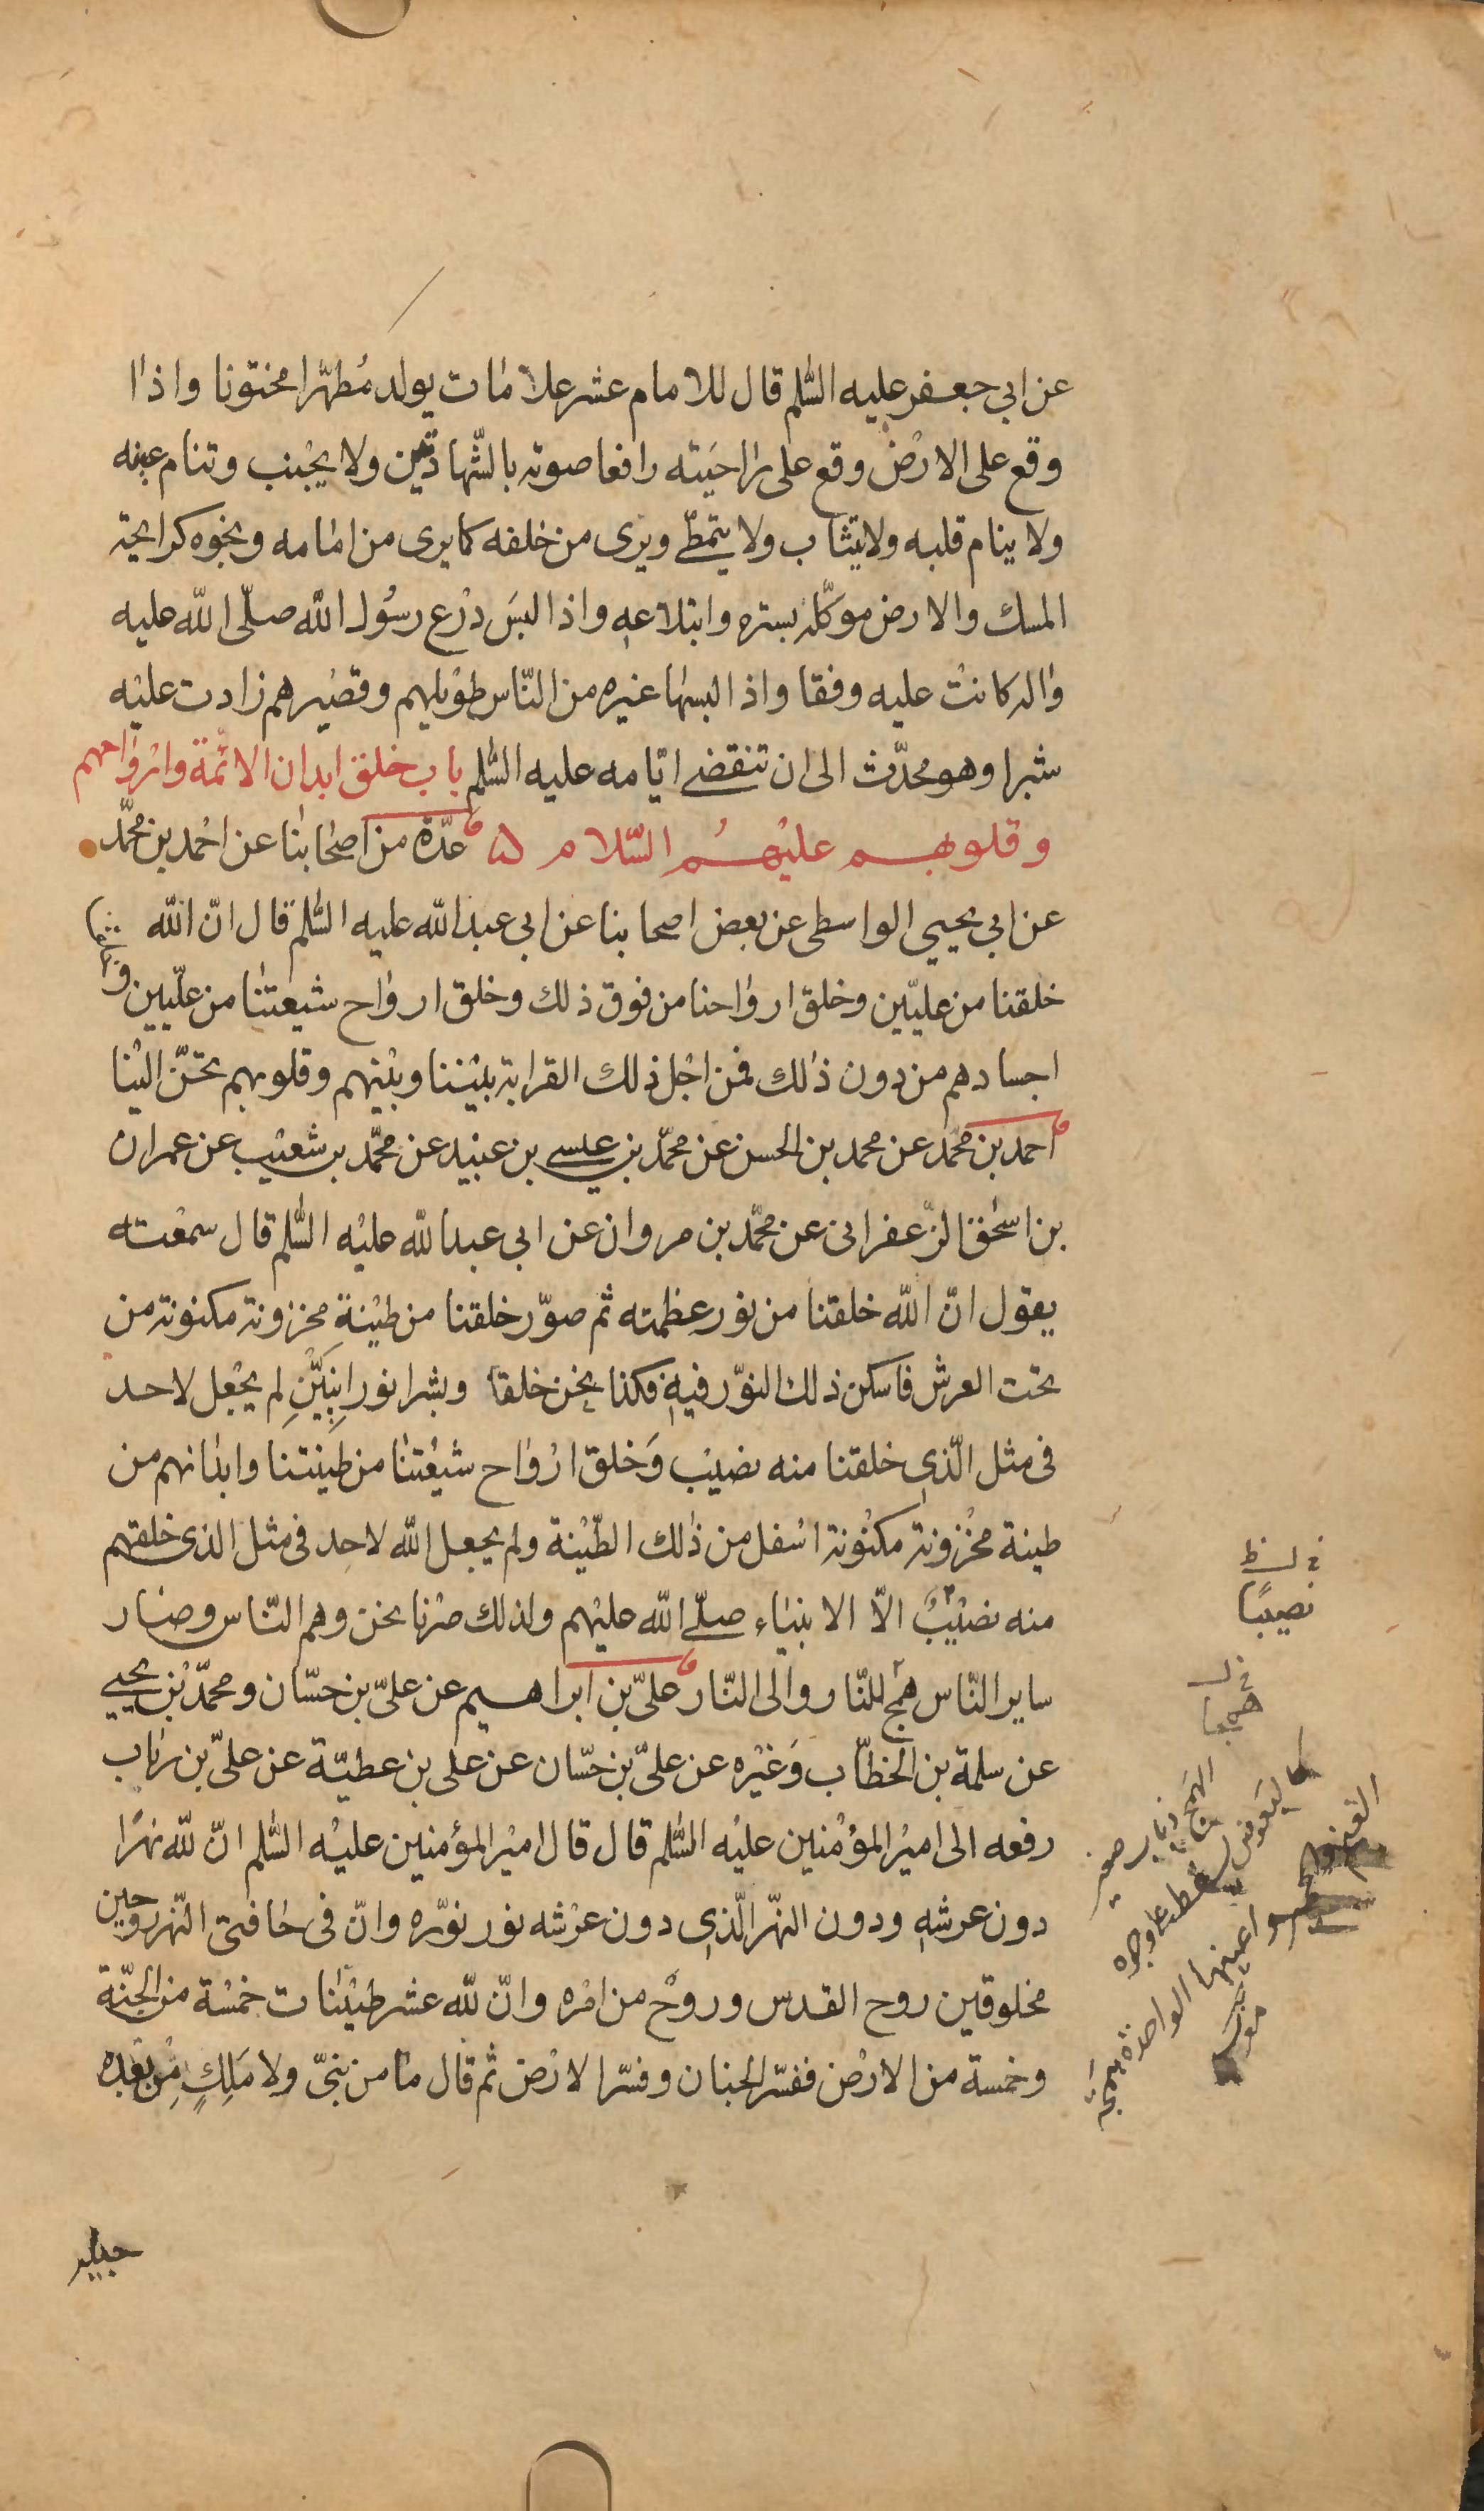 عن ابي جعفر عليه السّلم قال للامام عشر علامات يولد مُطهّرا مختونا واذا
وقع على الارْض وقع على راحَيته رافعا صوته بالشّهادتين ولا يُجْنب وتنام عينه
ولا ينام قلبه ولا يتثاب ولا يتمطّى ويرى من خلفه كما يرى من امامه ونجوه كرايحة
المسك والارض موكّله بستره وابتلاعهِ واذا لبسَ دْرع رسُول الله صلّى الله عليه
واله كانتْ عليه وفقا واذا لبسها غيره من النّاس طوْيلهم وقصيْرهم زادت عليْه
شبرا وهو محدّث الى ان تنقضى ايّامه عليه السّلم باب خلق ابدان الائمّة وارْواحهم
وقلوبهم عليْهمُ السّلام ۵ عدّة من اصْحابنا عن احْمد بن محمّد
عن ابي يحيي الواسطى عن بعض اصحابنا عن ابي عبدالله عليه السّلم قال انّ الله
خلقنا من عليّين وخلق ارواحنا من فوق ذلك وخلق ارواح شيعتنا من عليّين وخلق
اجسادهم من دون ذلك فمن اجْل ذلك القرابة بيْننا وبيْنهم وقلوبهم تحنّ اليْنا
احمد بن محمّد عن محمد بن الحسن عن محمّد بن عيسى بن عبيْد عن محمّد بن شعيْب عن عمران
بن اسحٰق الزّعفرانى عن محمّد بن مروان عن ابى عبدالله عليْه السّلم قال سمعْته
يقول انّ الله خلقنا من نور عظمته ثم صوّر خلقنا من طيْنة مخزونة مكنونة من
تحت العرش فاسكن ذلك النوّر فيهِ فكنا نحن خلقا وبشرا نورانِيِّيْنِ لم يجْعل لاحد
فى مثل الّذى خلقنا منه نصيْب وَخلق ارْواح شيْعتنا من طينتنا وابدانهم من
طينة مخْزونة مكنْونة اسْفل من ذٰلك الطّيْنة ولم يجعل الله لاحدِ فى مثل الذى خلقهم
منه نصيْبٌ الاّ الانبيَاء صلّى الله عليْهم ولذلك صْرنا نحن وهم النّاس وصار
ساير النّاس همج للنّار والى النّار علىّ بن ابراهيم عن علىّ بن حسّان ومحمّد بْن يحيي
عن سلمة بن الخطّاب وَغيْره عن علىّ بن حسّان عن على بن عطيّة عن علىّ بن رئاب
رفعه الى اميْر المؤمنين عليْه السّلم قال قال اميْر المؤمنين عليْه السّلم انّ لله نهرًا
دون عرشهِ ودون النهْر الّذى دون عرْشه نور نوّره وانّ فى حافتى النّهر روحين
مخلوقين روح القدس وروحْ من امْره وانّ لله عشر طيْنات خمْسة من الجنّة
وخمسة من الارْض ففسّر الجنان وفسّر الارْض ثم قال ما من نبىّ ولا مَلِكٍ مِن بعْده
فى ل ظ
نصيبًا
فى ل
همجا
الهمج ذباب صغير
كالبعوض يسقط على وجوه
الغنم والحمير واعينها الواحدة همجة
مغرب
جبله